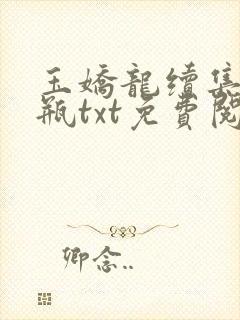 玉嬌龍續集
瓶txt免費閱
卿念..